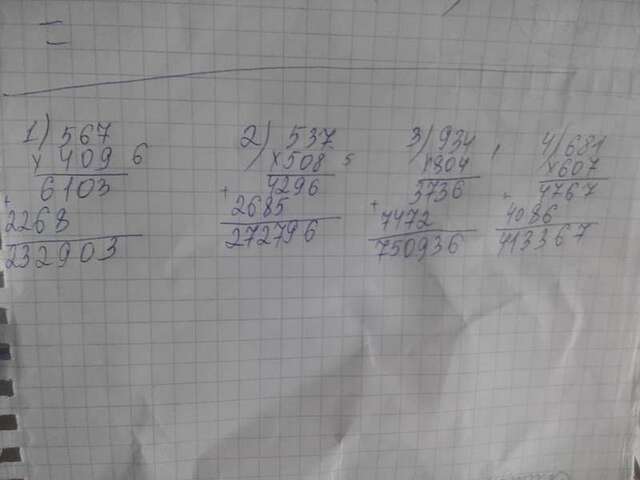 =
1) 567
× 409 6
6103
+
2268
232903
2) 537
× 508 5
4296
+
2685
272796
3) 934
× 804
3736
+
7472
750936
4) 681
× 607
4767
+
4086
413367